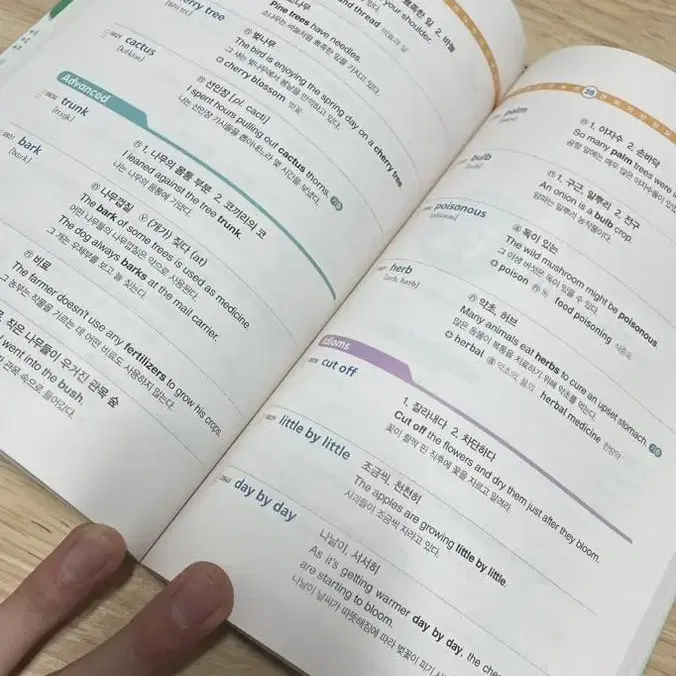 your shoulder.
뾰족한 잎 2. 바늘
Pine trees have needles.
소나무는 바늘처럼 뾰족한 잎을 가지고 있다.
and thread 바늘과 실
cherry tree
벚나무
The bird is enjoying the spring day on a cherry tree.
cherry blossom 벚꽃
cactus
선인장 [pl. cacti]
I spent hours pulling out cactus thorns.
나는 선인장 가시들을 뽑아내느라 몇 시간을 보냈다.
Advanced
trunk
[trʌŋk]
1. 나무의 몸통 부분 2. 코끼리의 코
I leaned against the tree trunk.
나는 나무의 몸통에 기댔다.
bark
[bɑːrk]
ⓝ 나무껍질 ⓥ (개가) 짖다 (at)
The bark of some trees is used as medicine.
어떤 나무들의 나무껍질은 약으로 사용된다.
The dog always barks at the mail carrier.
그 개는 우체부를 보고 늘 짖는다.
ⓝ 비료
The farmer doesn't use any fertilizers to grow his crops.
그 농부는 작물을 기르는 데 어떤 비료도 사용하지 않는다.
작은 나무들이 우거진 관목 숲
I went into the bush.
관목 속으로 들어갔다.
28
palm
ⓝ 1. 야자수 2. 손바닥
So many palm trees were
bulb
ⓝ 1. 구근, 알뿌리 2. 전구
An onion is a bulb crop.
양파는 알뿌리 농작물이다.
poisonous
ⓐ 독이 있는
The wild mushroom might be poisonous.
그 야생 버섯은 독이 있을 수 있다.
poison ⓝ 독 food poisoning 식중독
herb
[əːrb, həːrb]
ⓝ 약초, 허브
Many animals eat herbs to cure an upset stomach.
많은 동물이 복통을 치료하기 위해 약초를 먹는다.
herbal ⓐ 약초의, 풀의 herbal medicine 한방약
Idioms
cut off
1. 잘라내다 2. 차단하다
Cut off the flowers and dry them just after they bloom.
꽃이 활짝 핀 직후에 꽃을 자르고 말려라.
little by little
조금씩, 천천히
The apples are growing little by little.
사과들이 조금씩 자라고 있다.
day by day
나날이, 서서히
As it's getting warmer day by day, the
are starting to bloom.
나날이 날씨가 따뜻해짐에 따라 벚꽃이 피기